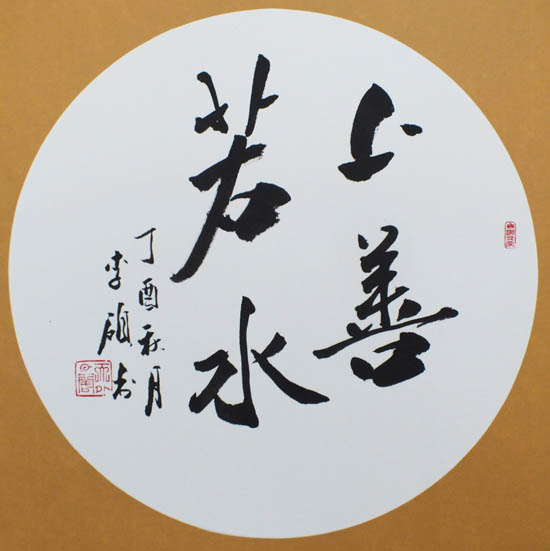 上善
若水
丁酉秋月
李硕书